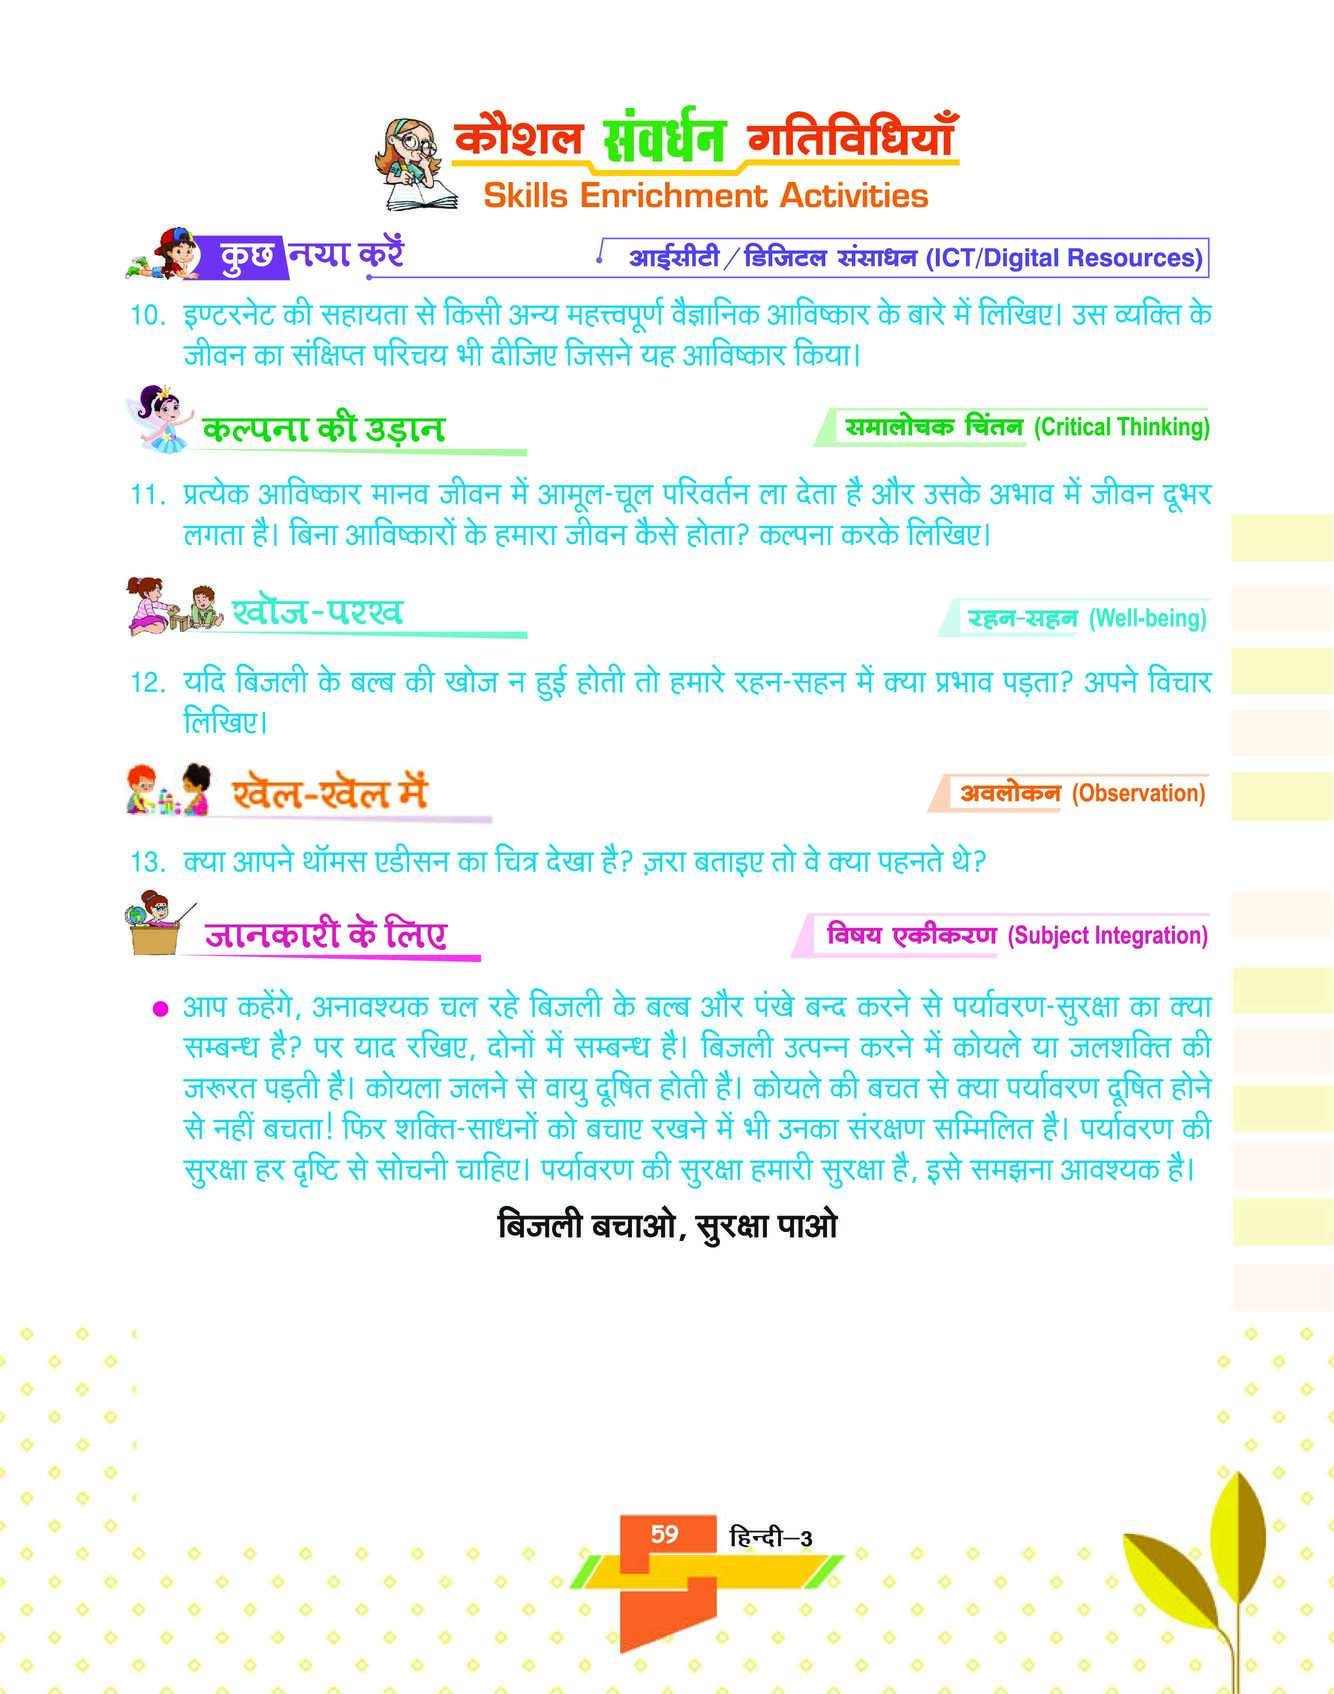 कौशल संवर्धन गतिविधियाँ
Skills Enrichment Activities
कुछ नया करें
आईसीटी / डिजिटल संसाधन (ICT/Digital Resources)
10. इण्टरनेट की सहायता से किसी अन्य महत्त्वपूर्ण वैज्ञानिक आविष्कार के बारे में लिखिए। उस व्यक्ति के
जीवन का संक्षिप्त परिचय भी दीजिए जिसने यह आविष्कार किया।
कल्पना की उड़ान
समालोचक चिंतन (Critical Thinking)
11. प्रत्येक आविष्कार मानव जीवन में आमूल-चूल परिवर्तन ला देता है और उसके अभाव में जीवन दूभर
लगता है। बिना आविष्कारों के हमारा जीवन कैसे होता? कल्पना करके लिखिए।
खोज-परख
रहन-सहन (Well-being)
12. यदि बिजली के बल्ब की खोज न हुई होती तो हमारे रहन-सहन में क्या प्रभाव पड़ता? अपने विचार
लिखिए।
खेल-खेल में
अवलोकन (Observation)
13. क्या आपने थॉमस एडीसन का चित्र देखा है? ज़रा बताइए तो वे क्या पहनते थे?
जानकारी के लिए
विषय एकीकरण (Subject Integration)
● आप कहेंगे, अनावश्यक चल रहे बिजली के बल्ब और पंखे बन्द करने से पर्यावरण-सुरक्षा का क्या
सम्बन्ध है? पर याद रखिए, दोनों में सम्बन्ध है। बिजली उत्पन्न करने में कोयले या जलशक्ति की
जरूरत पड़ती है। कोयला जलने से वायु दूषित होती है। कोयले की बचत से क्या पर्यावरण दूषित होने
से नहीं बचता! फिर शक्ति-साधनों को बचाए रखने में भी उनका संरक्षण सम्मिलित है। पर्यावरण की
सुरक्षा हर दृष्टि से सोचनी चाहिए। पर्यावरण की सुरक्षा हमारी सुरक्षा है, इसे समझना आवश्यक है।
बिजली बचाओ, सुरक्षा पाओ
59 हिन्दी–3